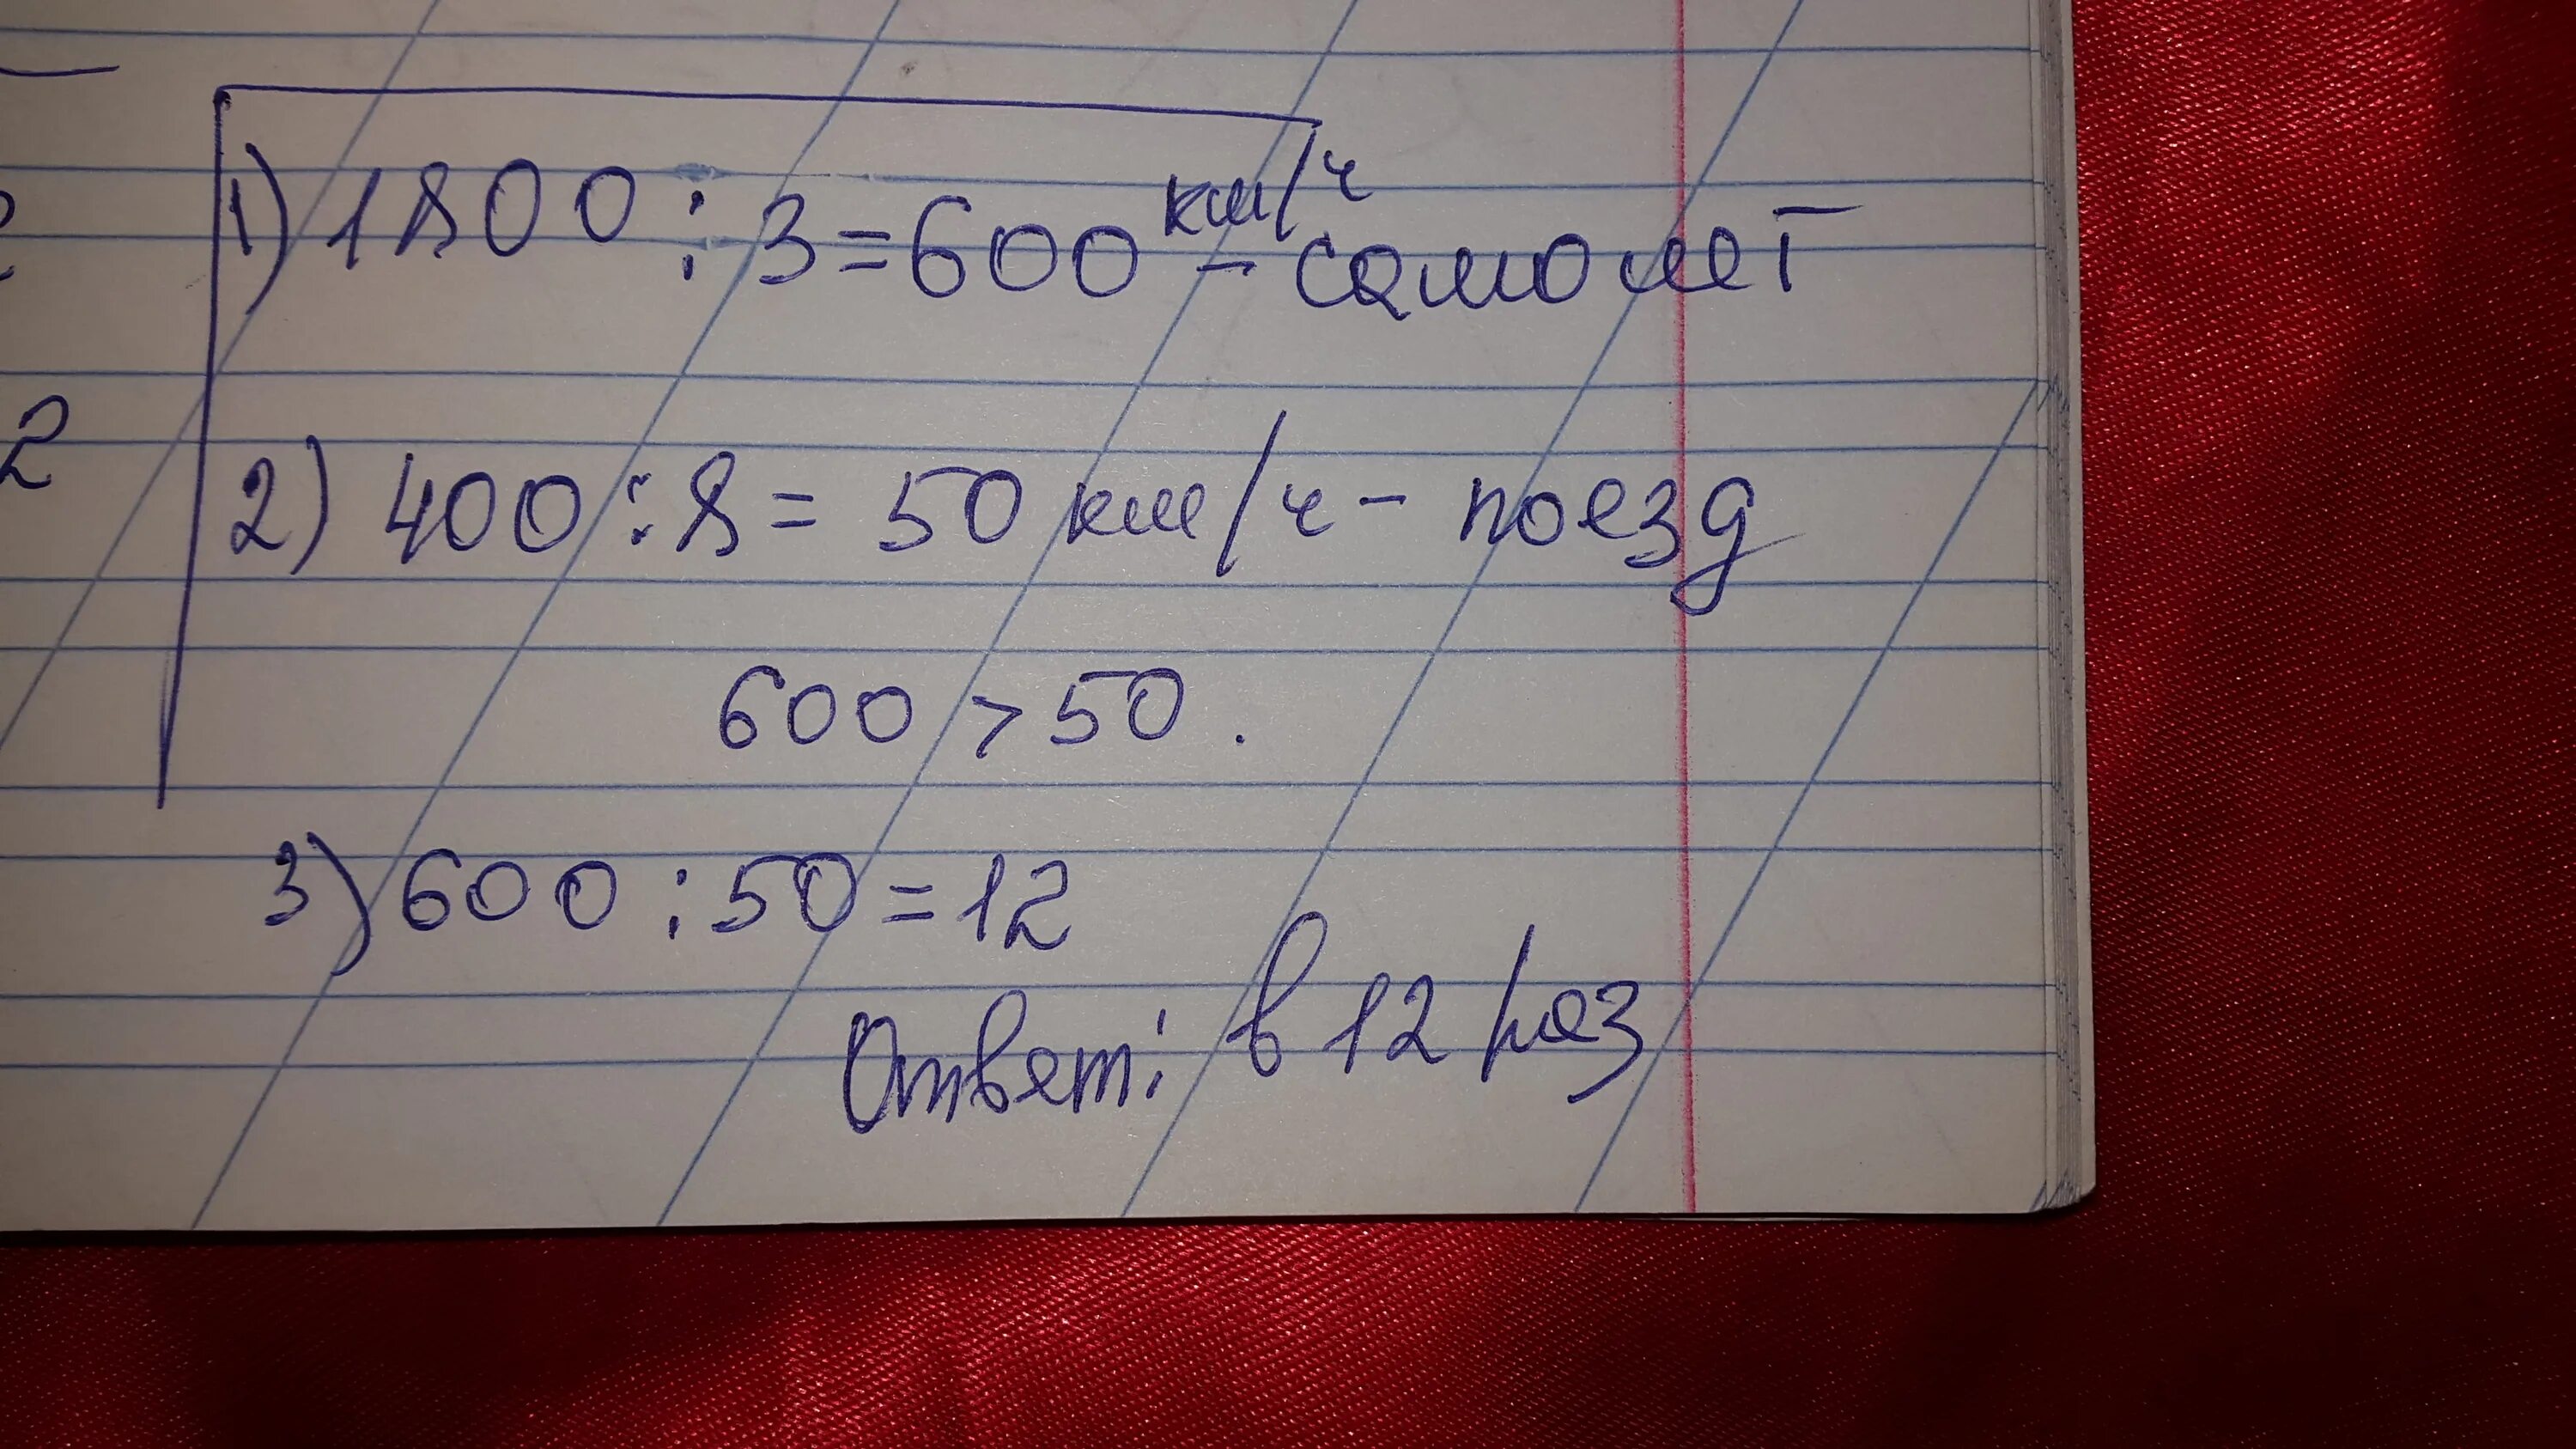 1) 1800 : 3 = 600 км/ч - самолет
2) 400 : 8 = 50 км/ч - поезд
600 > 50 .
3) 600 : 50 = 12
Ответ: в 12 раз
2